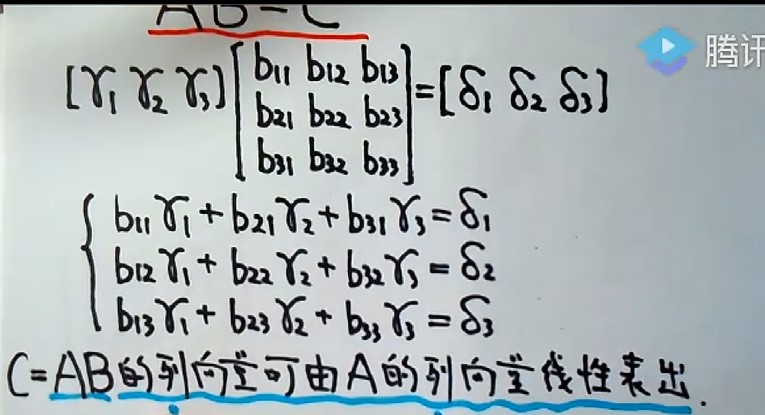 AB=C
腾讯
[γ₁ γ₂ γ₃][b₁₁ b₁₂ b₁₃
b₂₁ b₂₂ b₂₃
b₃₁ b₃₂ b₃₃]=[δ₁ δ₂ δ₃]
b₁₁γ₁+b₂₁γ₂+b₃₁γ₃=δ₁
b₁₂γ₁+b₂₂γ₂+b₃₂γ₃=δ₂
b₁₃γ₁+b₂₃γ₂+b₃₃γ₃=δ₃
C=AB的列向量可由A的列向量线性表出.